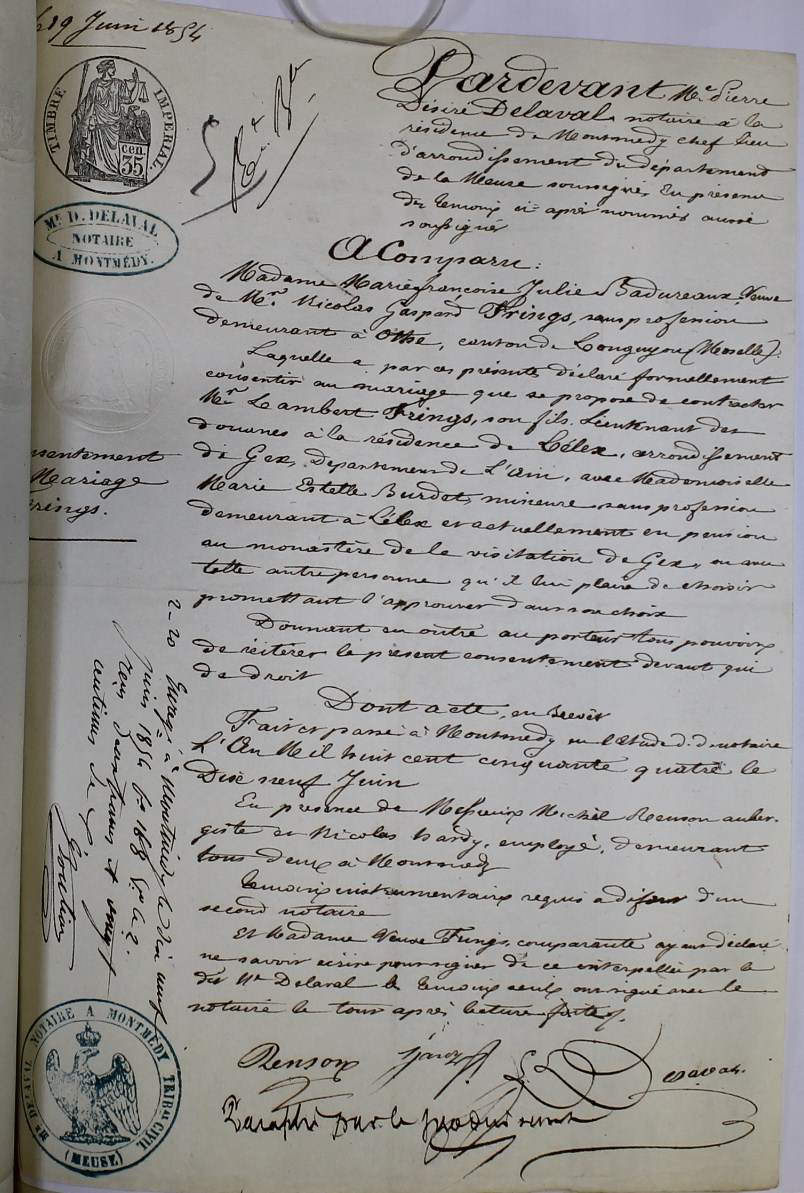 19 Juin 1854
TIMBRE IMPERIAL
35 cen.
Mᵉ D. DELAVAL
NOTAIRE
A MONTMÉDY.
Pardevant Mᵉ Pierre
Désiré Delaval, notaire à la
résidence de Montmedy chef lieu
d'arrondissement du département
de la Meuse soussigné, En présence
des temoins ci-après nommés aussi
soussignés
A Comparu :
Madame Mariefrançoise Julie Badureaux, Veuve
de Mʳ Nicolas Gaspard Frings, sans profession
demeurant à Othe, canton de Longuyon (Moselle).
Laquelle a par ces présentes déclaré formellement
consentir au mariage que se propose de contracter
Mʳ Lambert Frings, son fils, Lieutenant des
douanes à la résidence de Lélex, arrondissement
de Gex, Département de L'Ain, avec Mademoiselle
Marie Estelle Burdet, mineure, sans profession
demeurant à Lélex et actuellement en pension
au monastère de la visitation de Gex, ou avec
telle autre personne qu'il lui plaira de choisir
promettant l'approuver dans son choix
Donnant en outre au porteur tous pouvoirs
de réitérer le présent consentement devant qui
de droit
Dont acte, en Brevet
Fait et passé à Montmedy en l'étude d. du notaire
L'An Mil huit cent cinquante quatre le
Dix neuf Juin
En présence de Messieurs Michel Renson auber-
giste et Nicolas hardy, employé, demeurant
tous deux à Montmedy
temoins instrumentaires requis à défaut d'un
second notaire
Et Madame Veuve Frings, comparante ayant déclaré
ne savoir écrire pour signer de ce interpellée par le
dit Mᵉ Delaval les temoins seuls ont signé avec le
notaire le tout après lecture faite
Renson
Delaval
Paraphé par le
sentement
Mariage
rings.
2-20 Enreg. à Montmédy le dix neuf
juin 1854 fº 168
reçu deux francs et vingt
centimes
Mᵉ DELAVAL NOTAIRE A MONTMÉDY TRIB. CIVIL
(MEUSE)